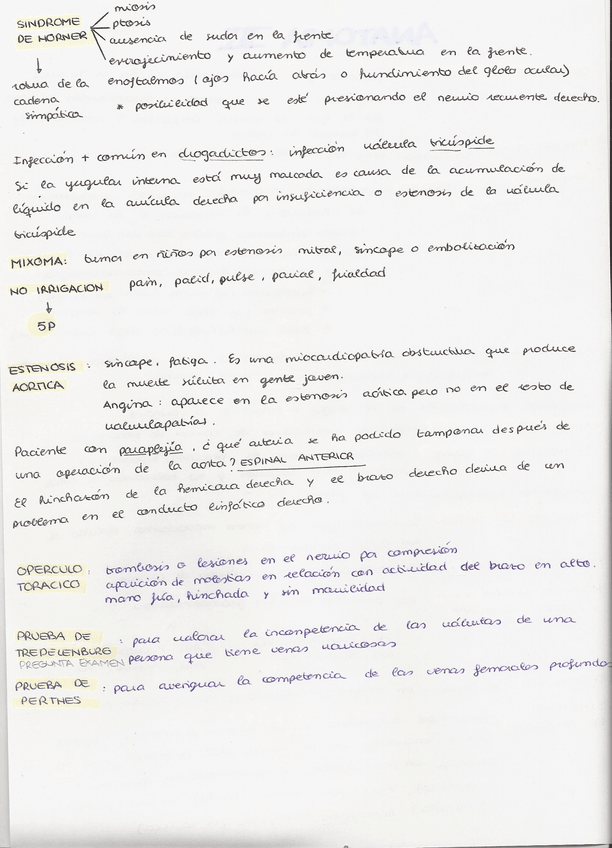 miosis
SINDROME ptosis
DE HORNER ausencia de sudor en la frente
enrojecimiento y aumento de temperatura en la frente.
rotura de la enoftalmos (ojos hacía atrás o hundimiento del globo ocular)
cadena * posibilidad que se esté presionando el nervio recurente derecho.
simpática
Infección + común en drogadictos: infección válvula tricúspide
Si la yugular interna está muy marcada es causa de la acumulación de
líquido en la aurícula derecha por insuficiencia o estenosis de la válvula
tricúspide
MIXOMA: tumor en niños por estenosis mitral, síncope o embolización
NO IRRIGACION pain, palid, pulse, parcial, frialdad
5P
ESTENOSIS : síncope, fatiga. Es una miocardiopatía obstructiva que produce
AORTICA la muerte súbita en gente joven.
Angina: aparece en la estenosis aórtica pero no en el resto de
valvulapatrías.
Paciente con paraplejía, ¿qué arteria se ha podido tamponar después de
una operación de la aorta? ESPINAL ANTERIOR
El hinchazón de la hemicara derecha y el brazo derecho deriva de un
problema en el conducto linfático derecho.
OPERCULO : trombosis o lesiones en el nervio por compresión
TORACICO aparición de molestias en relación con actividad del brazo en alto.
mano fría, hinchada y sin movilidad
PRUEBA DE : para valorar la incompetencia de las válvulas de una
TREDELENBURG persona que tiene venas varicosas
PREGUNTA EXAMEN
PRUEBA DE : para averiguar la competencia de las venas femorales profundas
PERTHES